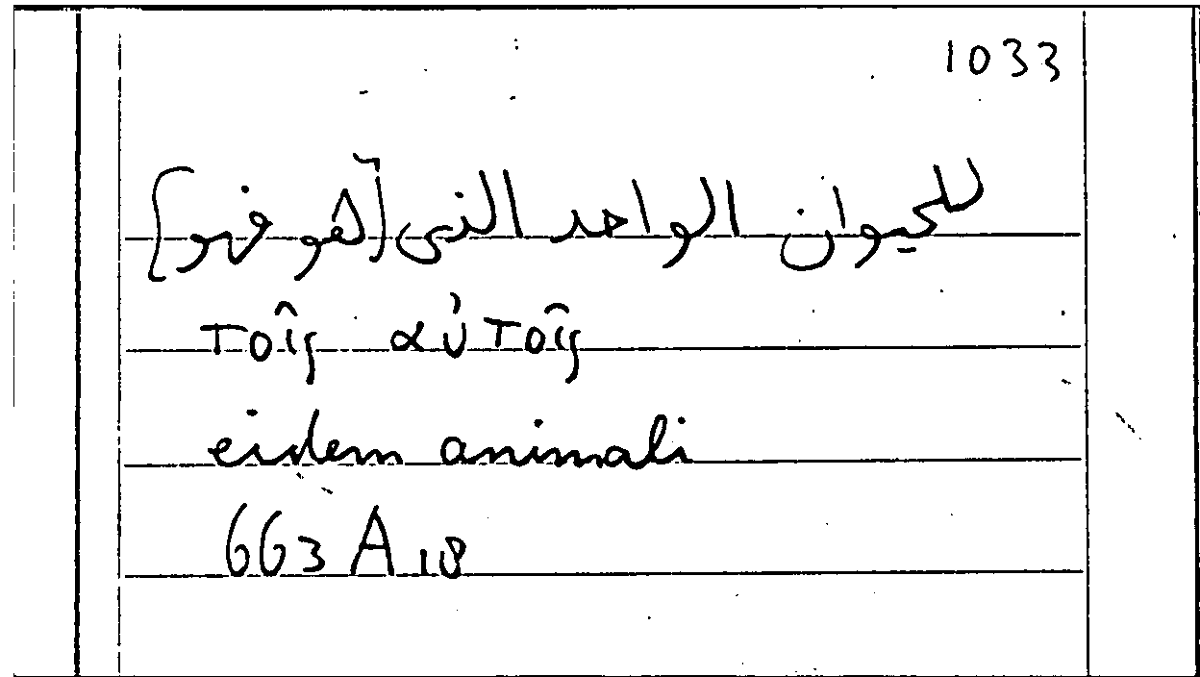 1033
للحيوان الواحد الذى [هو فهو]
τοῖς αὐτοῖς
eidem animali
663 A 18